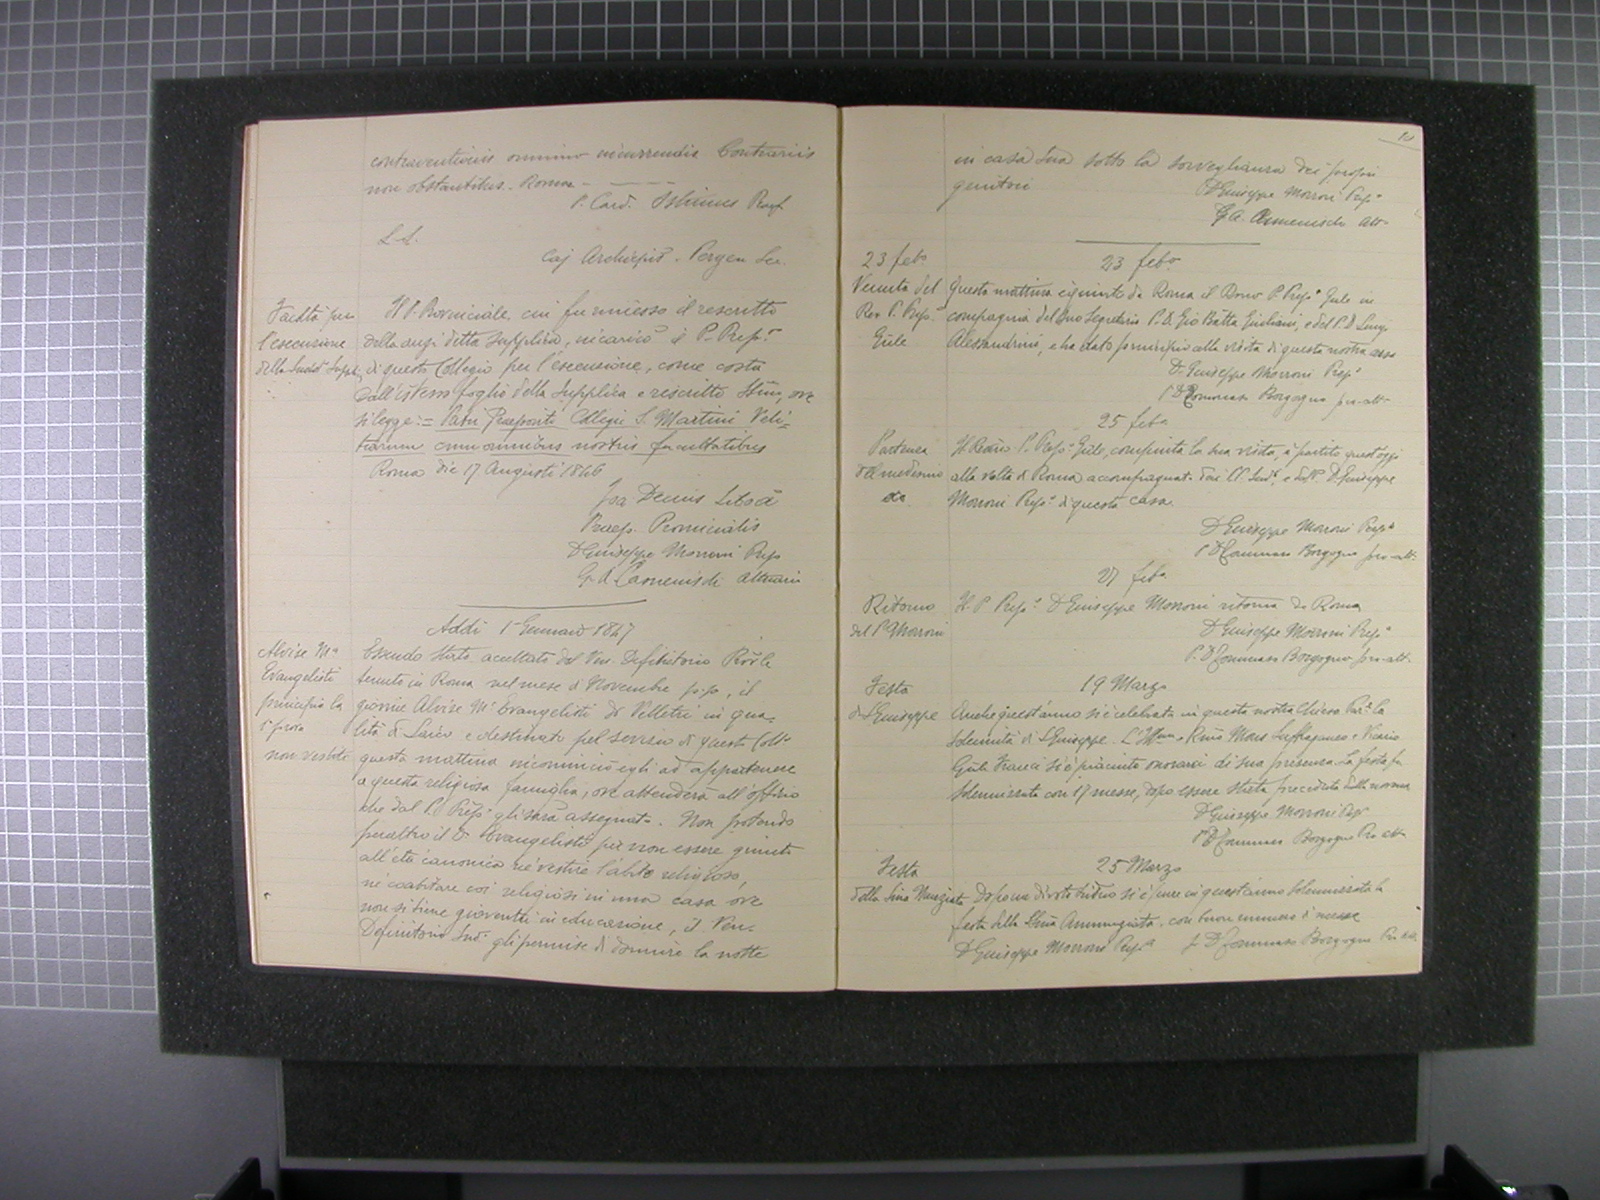 contraventionis omnimo incurrendis Contrariis
non obstantibus. Roma
P. Card. Ostinius Praef
L. S.
Caj Archiepis. Pergen Sec.
Facoltà per
l'esecuzione
della Sudd. Suppl.
Il P. Provinciale, cui fu rimesso il rescritto
della supi detta Supplica, incaricò il P. Prepto
di questo Collegio per l'esecuzione, come costa
dall'istesso foglio della Supplica e rescritto Ssmo, ove
si legge: = Patri Praeposito Collegii S. Martini Veli=
trarum cum omnibus nostris facultatibus
Roma die 17 Augusti 1846
Joa Decius Libois
Praep. Provincialis
D Giuseppe Morroni Prep
G. A. Camenisch Attuario
Addi 1 Gennaro 1847
Alvise Ma
Evangelisti
principia la
1a prova
non vestito
Essendo stato accettato dal Ven. Definitorio
tenuto in Roma nel mese di Novembre p. p., il
giovine Alvise Ma Evangelisti di Velletri in qua-
lità di Laico e destinato pel servizio di questo Colle
questa mattina incominciò egli ad appartenere
a questa religiosa famiglia, ove attenderà all'offizio
che dal P. Prepto gli sarà assegnato. Non potendo
peraltro il do Evangelisti per non essere giunto
all'età canonica nè vestire l'abito religioso,
nè coabitare coi religiosi in una casa ove
non si tiene gioventù in educazione, il Ven.
Definitorio Sudo gli permise di dormire la notte
in casa sua sotto la sorveglianza dei propri
genitori
D Giuseppe Morroni Prepo
G. A. Camenisch att-
23 febo
23 febo
Venuta del
Rev P. Prep.
Gnle
Questa mattina è giunto da Roma il Rmo P. Prepo Gnle in
compagnia del suo Segretario P. D. Gio Batta Giuliani, e del P. D. Luigi
Alessandrini, e ha dato principio alla visita di questa nostra casa
D. Giuseppe Morroni Prepo
P D Tommaso Borgogno pro-att-
25 febo
Partenza
del medesimo
Il Revmo P. Prepo Gnle, compiuta la sua visita, è partito quest'oggi
alla volta di Roma accompagnato dai PP. Sudi, e dal P. D. Giuseppe
Morroni Prepo di questa casa.
D Giuseppe Morroni Prepo
P D Tommaso Borgogno pro-att-
27 febo
Ritorno
del P. Morroni
Il P. Prepo D Giuseppe Morroni ritorna da Roma
D Giuseppe Morroni Prepo
P. D Tommaso Borgogno pro-att-
Festa
di S. Giuseppe
19 Marzo
Anche quest'anno si è celebrata in questa nostra Chiesa Parle la
Solennità di S. Giuseppe. L'Illmo e Rmo Mons Suffraganeo e Vicario
Gnle Franci si è piaciuto onorarci di sua presenza. La festa fu
solennizzata con 17 messe, dopo essere stata preceduta dalla novena
D Giuseppe Morroni Prepo
P D Tommaso Borgogno Pro att-
Festa
della Sma Nunziata
25 Marzo
Dopo un divoto triduo si è pure in quest'anno solennizzata la
festa della Sma Annunziata, con buon numero di messe
D Giuseppe Morroni Prepo P. D Tommaso Borgogno Pro att.